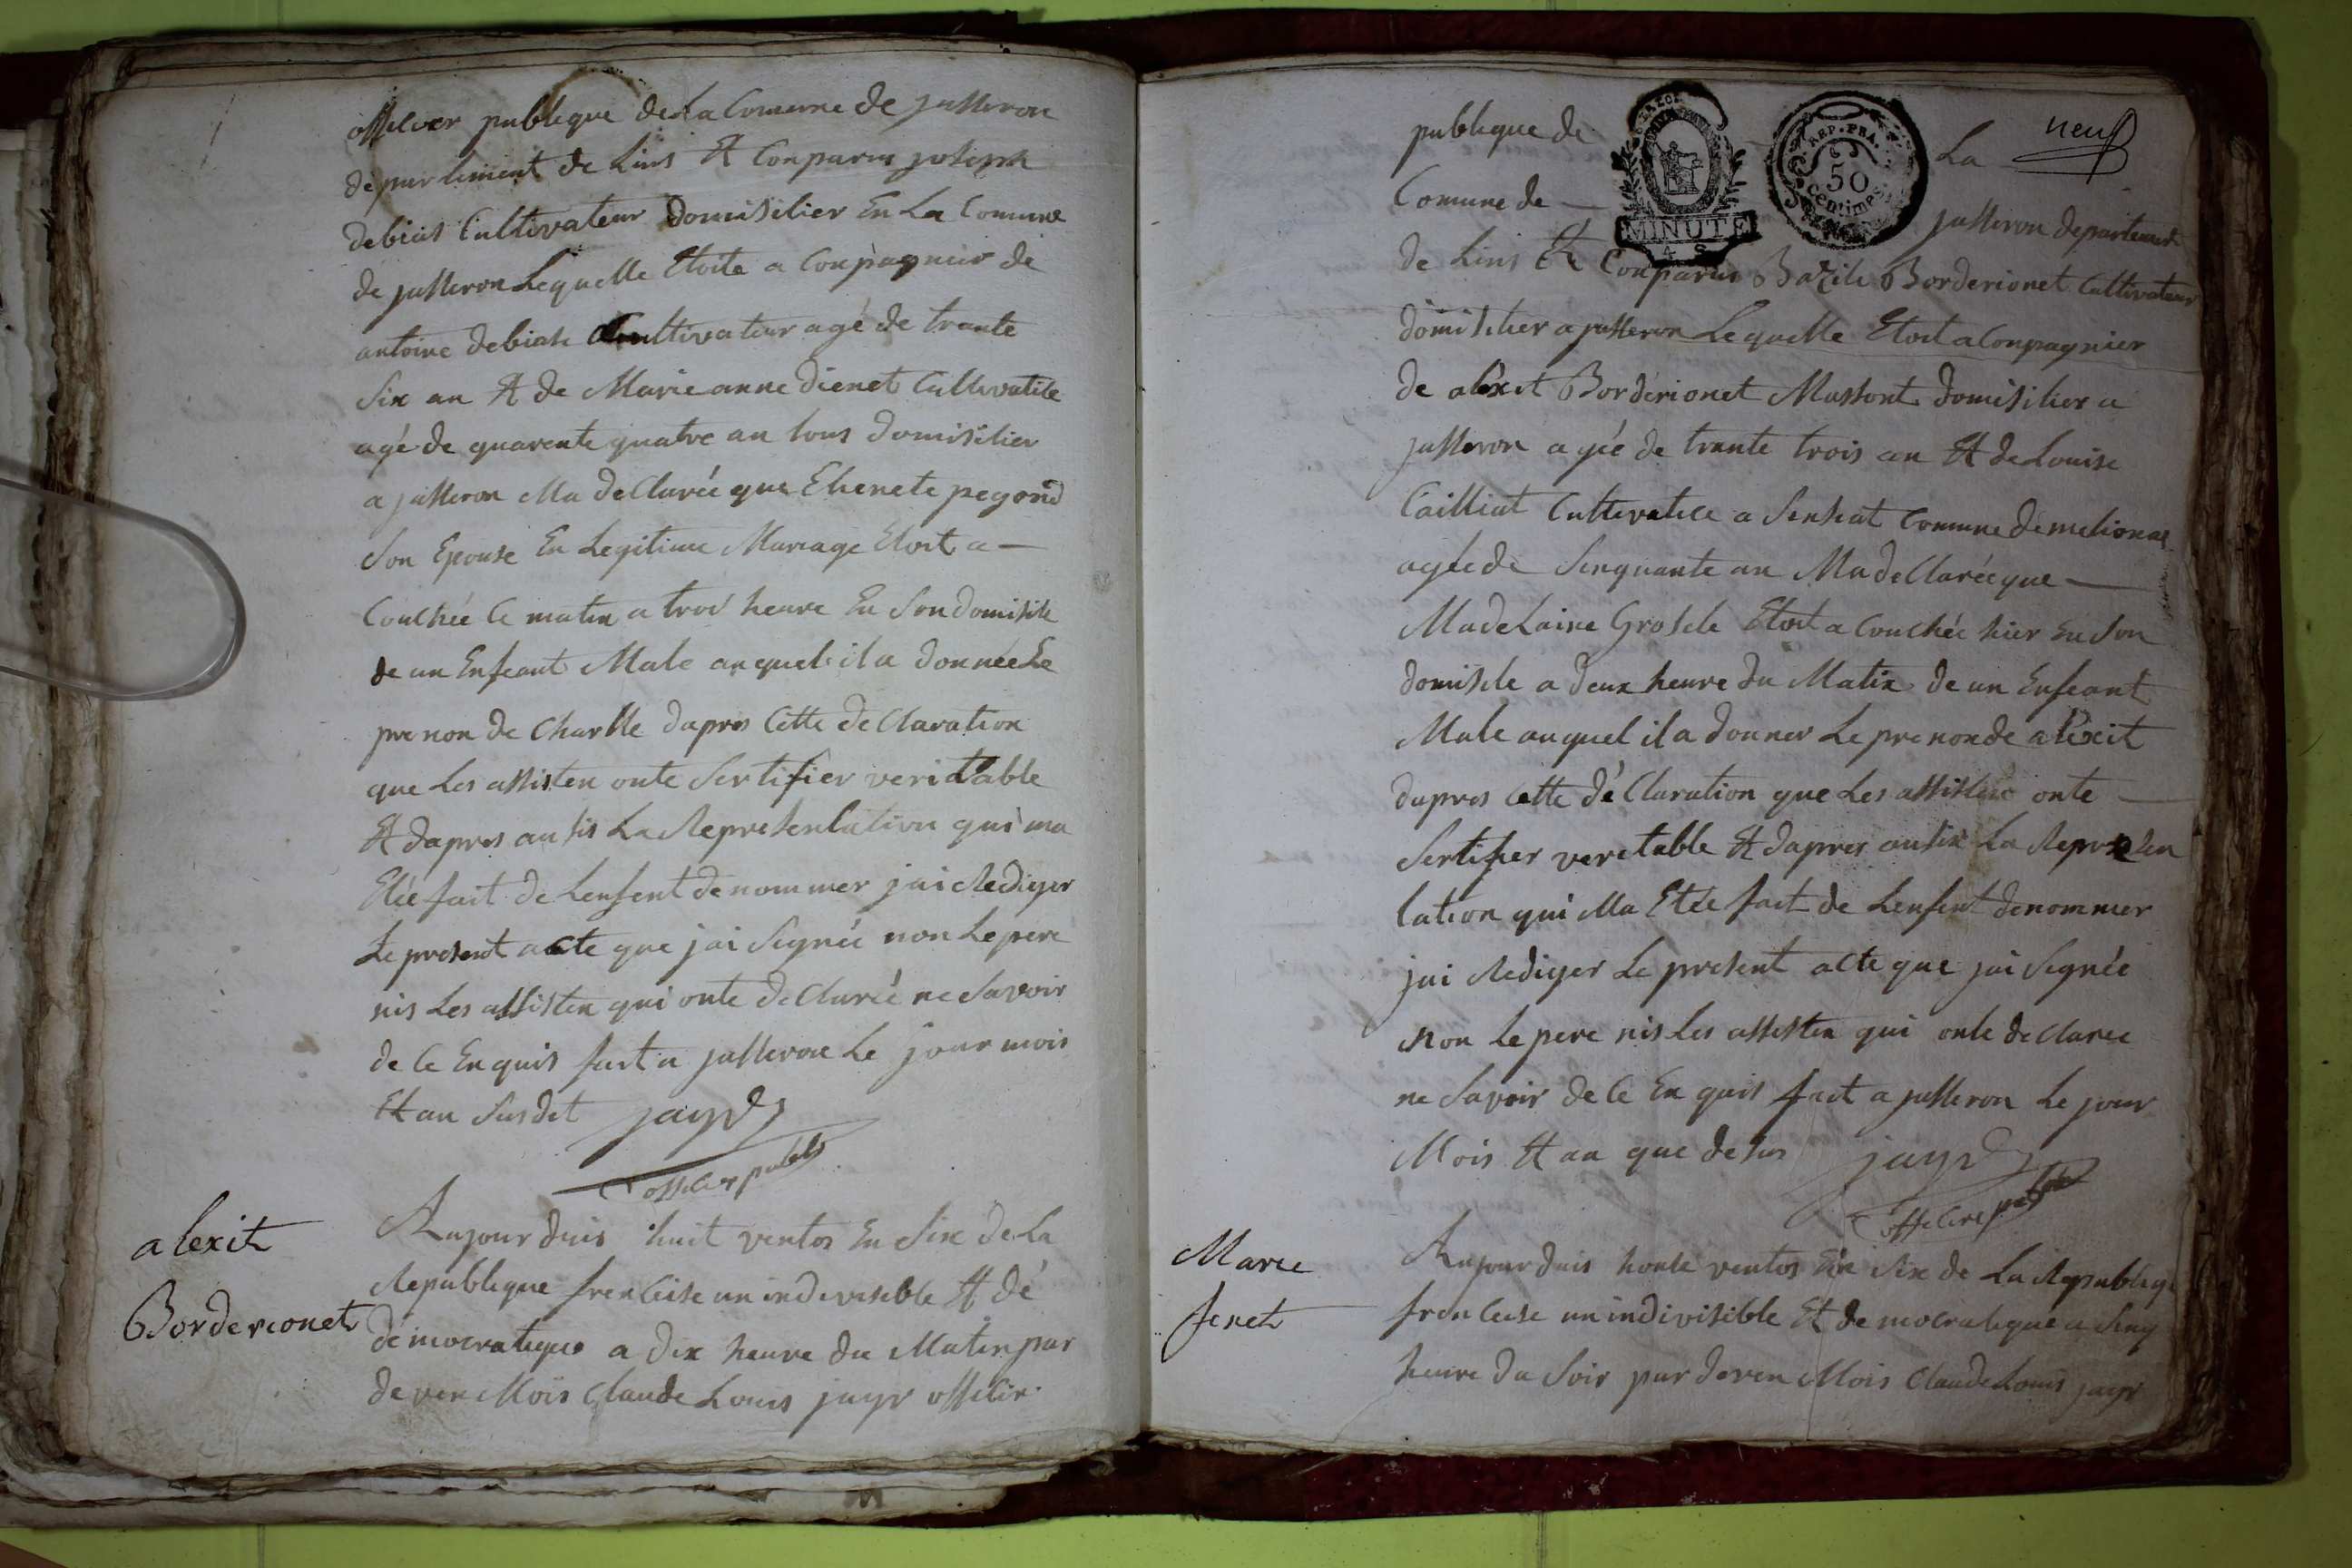 officier publique de La Comune de jasseron
departement de Lins Et Conparus joseph
debias Cultivateur domisilier En La Comune
de jasseron Lequelle Etoite a Conpagnier de
antoine debias Cultivateur agé de trante
Six an Et de Marie anne dienet Cultivatice
agé de quarente quatre an tous domisilier
a jasseron Ma deClarée que Ehenete pegond
Son Epouse En Legitime Mariage Etoit a —
Couchée Ce matin a troi heure En Son domisile
de un Enfeant Male auquel il a donnée Le
prenon de Charlle dapres Cette deClaration
que Les assisten onte Sertifier veritable
Et dapres ausis La Representation qui ma
Etée fait de Lenfent denommer jai Rediger
Le present acte que jai Signée non Le pere
nis Les assisten qui onte deClarée ne Savoir
de Ce Enquis fait a jasseron Le jour mois
Et an Susdit jayr
officier public
alexit
Borderionet
Aujourduis huit ventos En Six de La
Republique frenCeise un indivisible Et dé
démocratique a dix heure du Matin par
deven Mois Claude Louis jayr officier
neuf
publique de La
MINUTE
REP. FRA.
50
centimes
Comune de — jasseron departement
de Lins Et Conparus Bazile Borderionet Cultivateur
domisilier a jasseron Lequelle Etoit a Conpagnier
de alexit Borderionet Massont domisilier a
jasseron agée de trante trois an Et de Louise
Cailliat Cultivatice a Senseat Comune de melionas
agée de Sinquante an Ma deClarée que —
MadeLaine Grosele Etoit a Couchée hier En Son
domisile a deux heure du Matin de un Enfeant
Male auquel il a donner Le prenon de alexit
dapres Cette déClaration que Les assisten onte —
Sertifier veretable Et dapres ausis La Represen
tation qui Ma Etée fait de Lenfent denommer
jai Rediger Le present acte que jai Signée
Non Le pere nis Les assisten qui onte deClarée
ne Savoir de Ce Enquis fait a jasseron Le jour
Mois Et an que desus jayr
officier public
Marie
fenet
Aujourduis honte ventos En Six de La Republique
frenCeise un indivisible Et democratique a Sinq
heure du Soir par deven Mois Claude Louis jayr